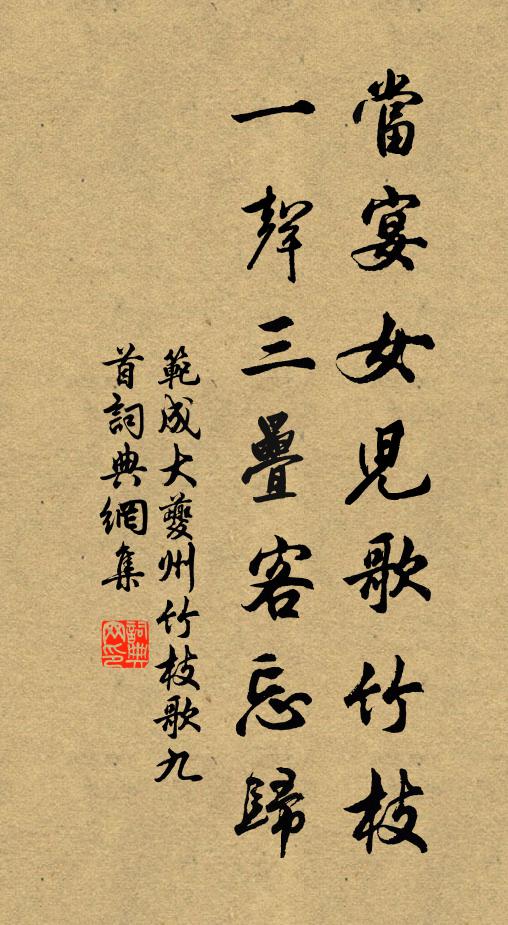 當宴女兒歌竹枝
一聲三疊客忘歸
範成大夔州竹枝歌九
首詞典網集
詞典
网印